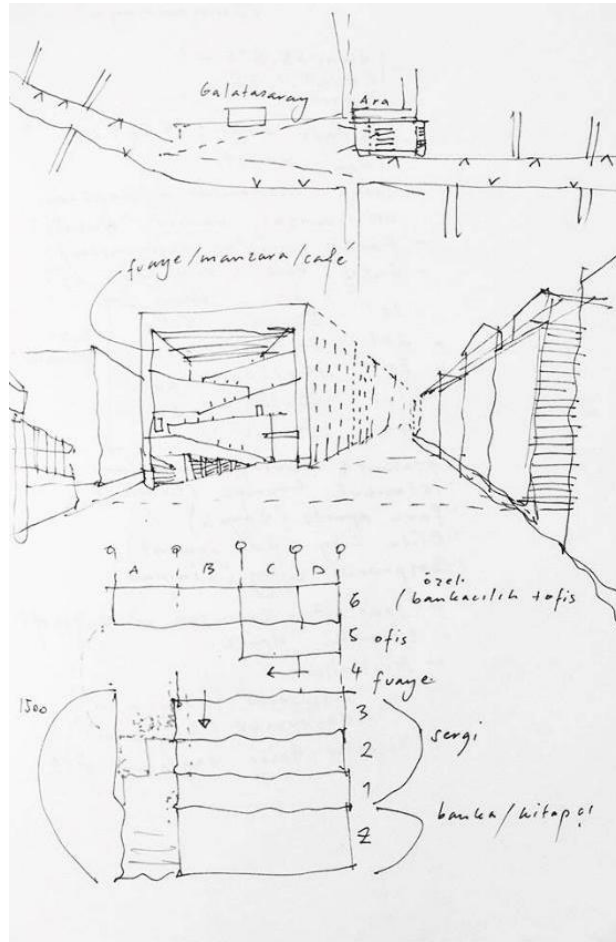 Galatasaray
Ara
fuaye/manzara/café
A B C D
6 özel
/bankacılık + ofis
5 ofis
4 fuaye
1500
3
2 sergi
1
banka/kitapçı
Z